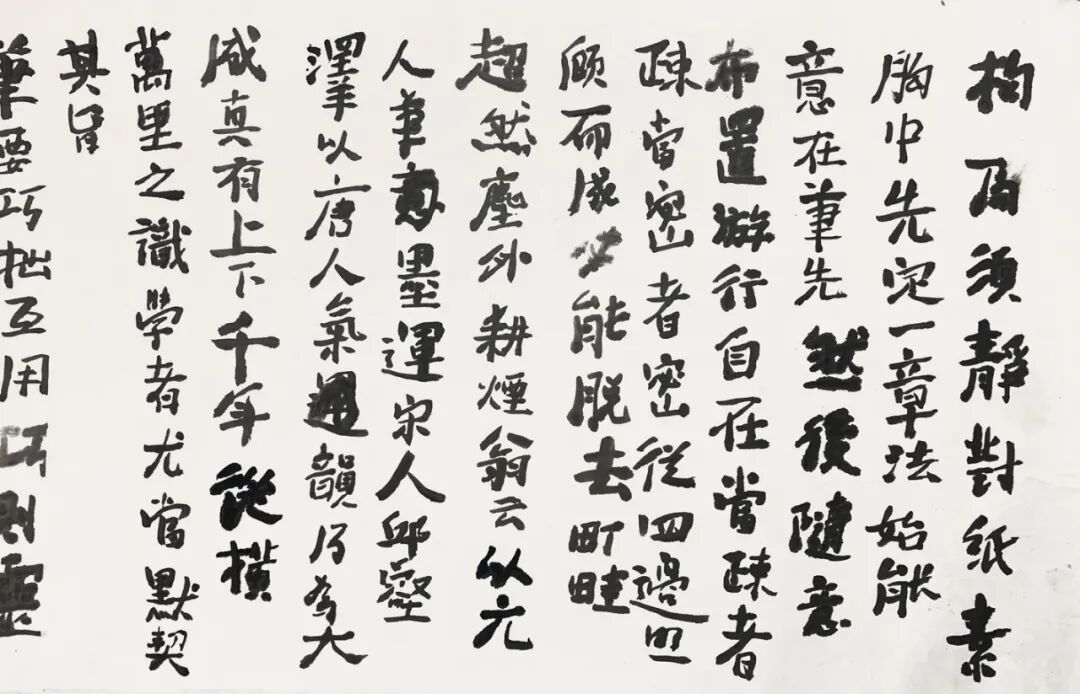 构局須靜對紙素
胸中先定一章法始能
意在筆先然後隨意
布置游行自在當疎者
疎當密者密從四邊照
顧而成必能脫去町畦
超然塵外耕煙翁云以元
人筆墨運宋人邱壑
澤以唐人氣韻乃為大
成真有上下千年從橫
萬里之識學者尤當默契
其旨
筆要巧拙互用巧則靈